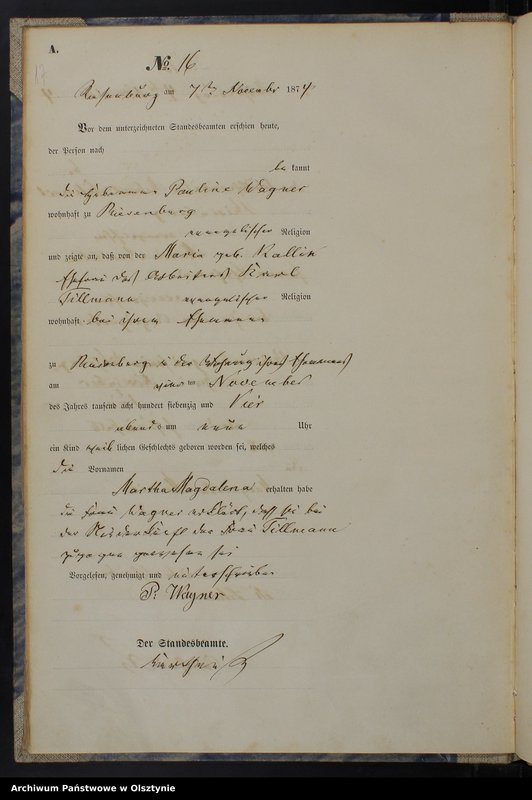 A.
17
No. 16
Riesenburg am 7ten November 1874
Vor dem unterzeichneten Standesbeamten erschien heute,
der Person nach
be kannt
die Hebamme Pauline Wagner
wohnhaft zu Riesenburg
evangelischer Religion
und zeigte an, daß von der Maria geb. Kallin
Ehefrau des Arbeiters Karl
Tillmann evangelischer Religion
wohnhaft bei ihrem Ehemann
zu Riesenburg in der Wohnung ihres Ehemannes
am ten November
des Jahres tausend acht hundert siebenzig und Vier
abends um neun Uhr
ein Kind weib lichen Geschlechts geboren worden sei, welches
die Vornamen
Martha Magdalena erhalten habe
die Frau Wagner erklärt, daß sie bei
der Niederkunft der Frau Tillmann
zugegen gewesen sei
Vorgelesen, genehmigt und unterschrieben
P. Wagner
Der Standesbeamte.
Archiwum Państwowe w Olsztynie